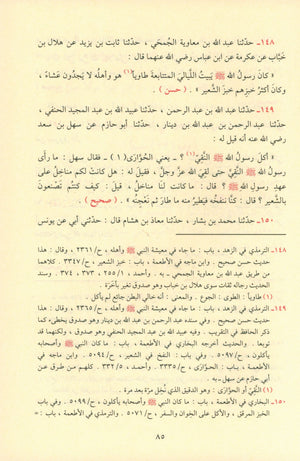 ١٤٨ـ حدّثنا عبد الله بن معاوية الجُمحَي ، حدّثنا ثابت بن يزيد عن هلال بن
خَبَّاب عن عكرمة عن ابن عباس رضي الله عنهما قال :
« كَانَ رسولُ اللهِ ﷺ يَبِيتُ اللَّياليَ المتتابعةَ طاوياً(١) هو وأهلُه لا يَجدُون عَشاءً ،
وكان أكثرُ خبزِهم خبزَ الشَّعير » . ( حسن ) .
١٤٩ـ حدّثنا عبد الله بن عبد الرحمن ، حدّثنا عبيد الله بن عبد المجيد الحنفي ،
حدّثنا عبد الرحمن بن عبد الله بن دينار ، حدّثنا أبو حازم عن سهل بن سعد
رضي الله عنه أنه قيل له :
« أكلَ رسولُ اللهِ ﷺ النَّقِيَّ(١) ؟ ـ يعني الحُوَّارَى(١) ـ فقال سهل : ما رأى
رسولُ اللهِ ﷺ النَّقِيَّ حتى لقِيَ اللهَ عزَّ وجلَّ ، فقيل له : هل كانتْ لكم مناخِلُ على
عهدِ رسولِ اللهِ ﷺ ؟ قال : ما كانت لنا مناخلُ ، قيل : كيف كنتُم تَصْنعونَ
بالشَّعير ؟ قال : كنَّا ننفُخُه فيَطيرُ منه ما طارَ ثم نَعْجِنُه » . ( صحيح ) .
١٥٠ـ حدّثنا محمد بن بشار ، حدّثنا معاذ بن هشام قال : حدّثني أبي عن يونس
١٤٨ـ الترمذي في الزهد ، باب : ما جاء في معيشة النبي ﷺ وأهله ، ح/٢٣٦١ ، وقال : هذا
حديث حسن صحيح . وابن ماجه في الأطعمة ، باب : خبز الشعير ، ح/٣٣٤٧ . كلاهما
من طريق عبد الله بن معاوية الجمحي . به . وأحمد ، ٢٥٥/١ ، ٣٧٣ ، ٣٧٤ . وسند
الحديث رجاله ثقات سوى هلال بن خباب وهو صدوق تغير بأخَرَة .
(١) طاوياً : الطوى : الجوع . والمعنى : أنه خالي البطن جائع لم يأكل .
١٤٩ـ الترمذي في الزهد ، باب : ما جاء في معيشة النبي ﷺ وأهله ، ح/٢٣٦٥ ، وقال : هذا
حديث حسن صحيح . وفي سنده عبد الرحمن بن عبد الله بن دينار وهو صدوق يخطىء كما
ذكر الحافظ في التقريب . وفيه عبيد الله بن عبد المجيد الحنفي وهو صدوق ، ولكنهما قد
توبعا . والحديث أخرجه البخاري في الأطعمة ، باب : ما كان النبي ﷺ وأصحابه
يأكلون ، ح/٥٠٩٧ . وفي باب : النفخ في الشعير ، ح/٥٠٩٤ . وابن ماجه في
الأطعمة ، باب : الحوّارَى ، ح/٣٣٣٥ . وأحمد ، ٣٣٢/٥ . كلهم من طرق عن
أبي حازم عن سهل . به .
(١) النَّقِيَّ : الحوّارَى : وهو الدقيق الذي نُخِل مرّة بعد مرة .
١٥٠ـ البخاري في الأطعمة ، باب : ما كان النبي ﷺ وأصحابه يأكلون ، ح/٥٠٩٩ . وفي باب :
الخبز المرقق ، والأكل على الخوان والسفر ، ح/٥٠٧١ . والترمذي في الأطعمة ، باب : =
٨٥